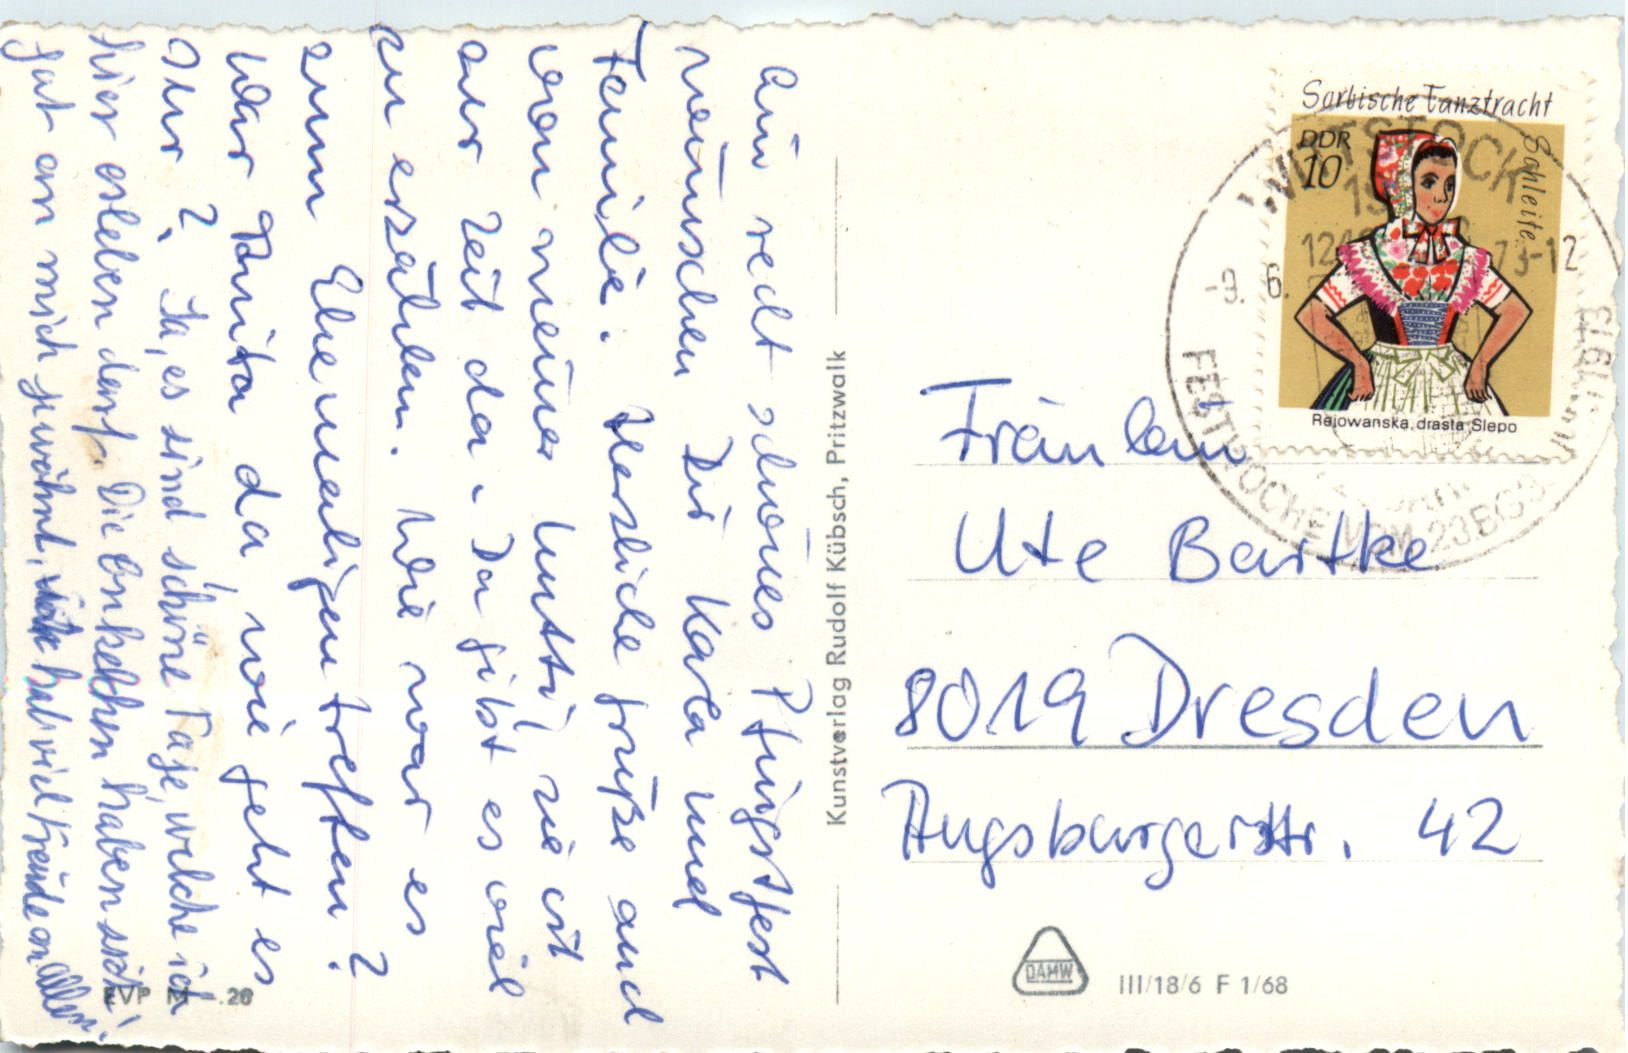 Ein recht schönes Pfingstfest
wünschen Dir Karla und
Familie. Herzliche Grüße auch
von meiner Mutti, sie ist
zur Zeit da. Da gibt es viel
zu erzählen. Wie war es
zum Ehemaligentreffen?
War Anita da, wie geht es
Ihr? Ja, es sind schöne Tage, welche ich
hier erleben darf. Die Enkelchen haben sich
gut an mich gewöhnt, hab viel Freude an Allen!
EVP M .20
Kunstverlag Rudolf Kübsch, Pritzwalk
Sorbische Tanztracht
Schleife
DDR
10
Rejowanska drasta Slepo
WITTSTOCK
-9. 6. 73-12
FESTWOCHE VOM 23 BIS
Fräulein
Ute Bartke
8019 Dresden
Augsburgerstr. 42
DAMW
III/18/6 F 1/68